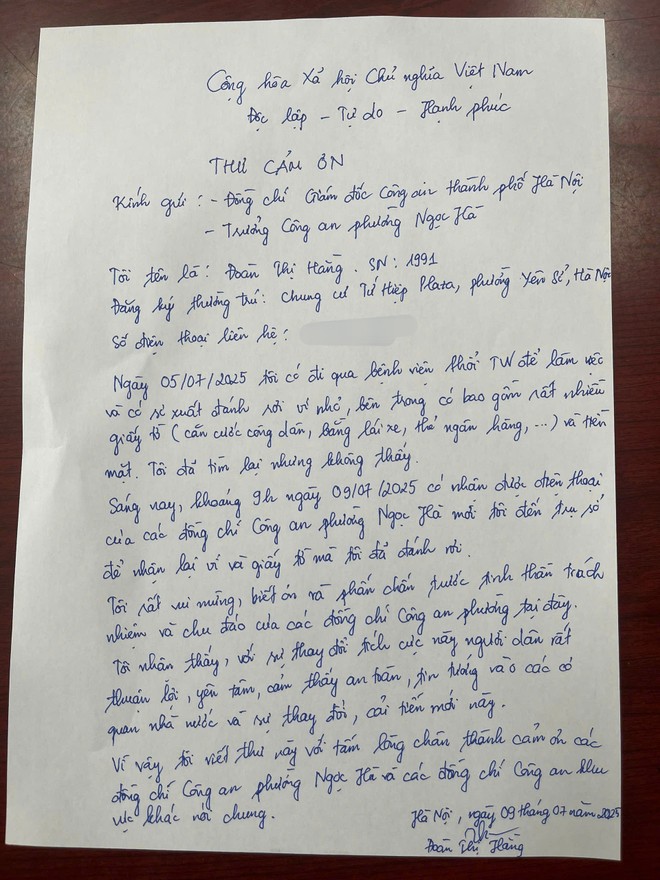 Cộng hòa Xã hội Chủ nghĩa Việt Nam
Độc lập - Tự do - Hạnh phúc
THƯ CẢM ƠN
Kính gửi : - Đồng chí Giám đốc Công an thành phố Hà Nội
- Trưởng Công an phường Ngọc Hà
Tôi tên là : Đoàn Thị Hằng . SN : 1991
Đăng ký thường trú : Chung cư Tứ Hiệp Plaza, phường Yên Sở, Hà Nội
Số điện thoại liên hệ :
Ngày 05/07/2025 tôi có đi qua bệnh viện Phổi TW để làm việc
và có sơ xuất đánh rơi ví nhỏ, bên trong có bao gồm rất nhiều
giấy tờ ( căn cước công dân, bằng lái xe, thẻ ngân hàng, ...) và tiền
mặt. Tôi đã tìm lại nhưng không thấy.
Sáng nay, khoảng 9h ngày 09/07/2025 có nhận được điện thoại
của các đồng chí Công an phường Ngọc Hà mời tôi đến trụ sở
để nhận lại ví và giấy tờ mà tôi đã đánh rơi .
Tôi rất vui mừng, biết ơn và phấn chấn trước tinh thần trách
nhiệm và chu đáo của các đồng chí Công an phường tại đây.
Tôi nhận thấy, với sự thay đổi tích cực này người dân rất
thuận lợi, yên tâm, cảm thấy an toàn, tin tưởng vào các cơ
quan nhà nước và sự thay đổi, cải tiến mới này.
Vì vậy tôi viết thư này với tấm lòng chân thành cảm ơn các
đồng chí Công an phường Ngọc Hà và các đồng chí Công an khu
vực khác nói chung.
Hà Nội, ngày 09 tháng 07 năm 2025
Đoàn Thị Hằng